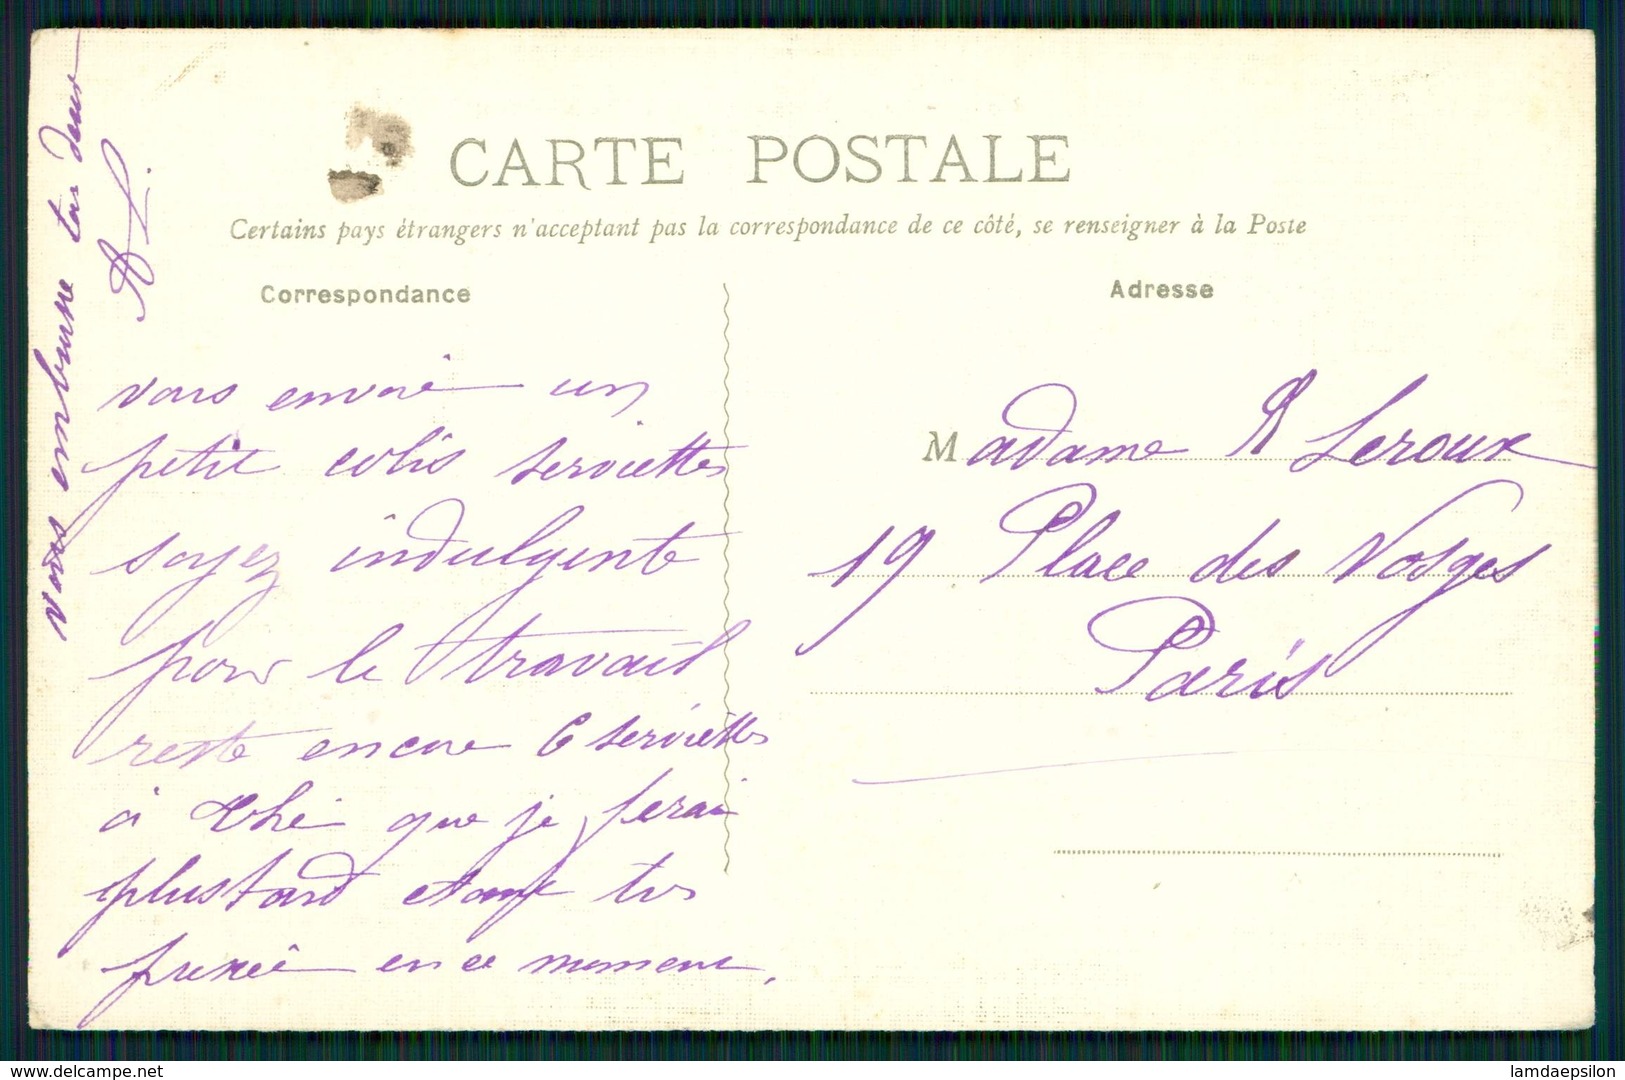 CARTE POSTALE
Certains pays étrangers n'acceptant pas la correspondance de ce côté, se renseigner à la Poste
Correspondance
Adresse
vous envoie un
petit colis serviettes
soyez indulgente
pour le travail
reste encore 6 serviettes
à thé que je ferai
plus tard étant très
préssée en ce moment,
vous embrasse tous deux
Madame R Leroux
19 Place des Vosges
Paris
www.delcampe.net
lamdaepsilon